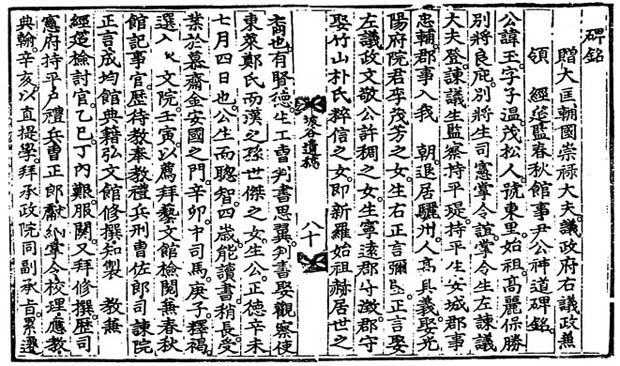 碑銘
贈大匡輔國崇祿大夫議政府右議政兼
領 經筵監春秋館事尹公神道碑銘
公諱玉字子溫茂松人號東里始祖高麗保勝
別將良庇別將生司憲掌令誼掌令生左諫議
大夫登諫議生監察持平持平生安城郡事
忠輔郡事入我 朝退居驪州人高其義娶光
陽府院君李茂芳之女生右正言彌堅正言娶
左議政文敬公許稠之女生寧遠郡守郡守
娶竹山朴氏粹信之女卽新羅始祖赫居世之
坡谷遺稿 八十
裔也有賢德生工曹判書思翼判書娶觀察使
東萊鄭氏而漢之孫世傑之女生公正德辛未
七月四日也公生而聰智四歲能讀書稍長受
業於慕齋金安國之門辛卯中司馬庚子釋褐
選入文院壬寅以薦拜藝文館檢閱兼春秋
館記事官歷待教奉教禮兵刑曹佐郎司諫院
正言成均館典籍弘文館修撰知製 教兼
經筵檢討官乙巳丁內艱服闋又拜修撰歷司
憲府持平戶禮兵曹正郎獻納掌令校理應教
典翰辛亥以直提學拜承政院同副承旨累遷